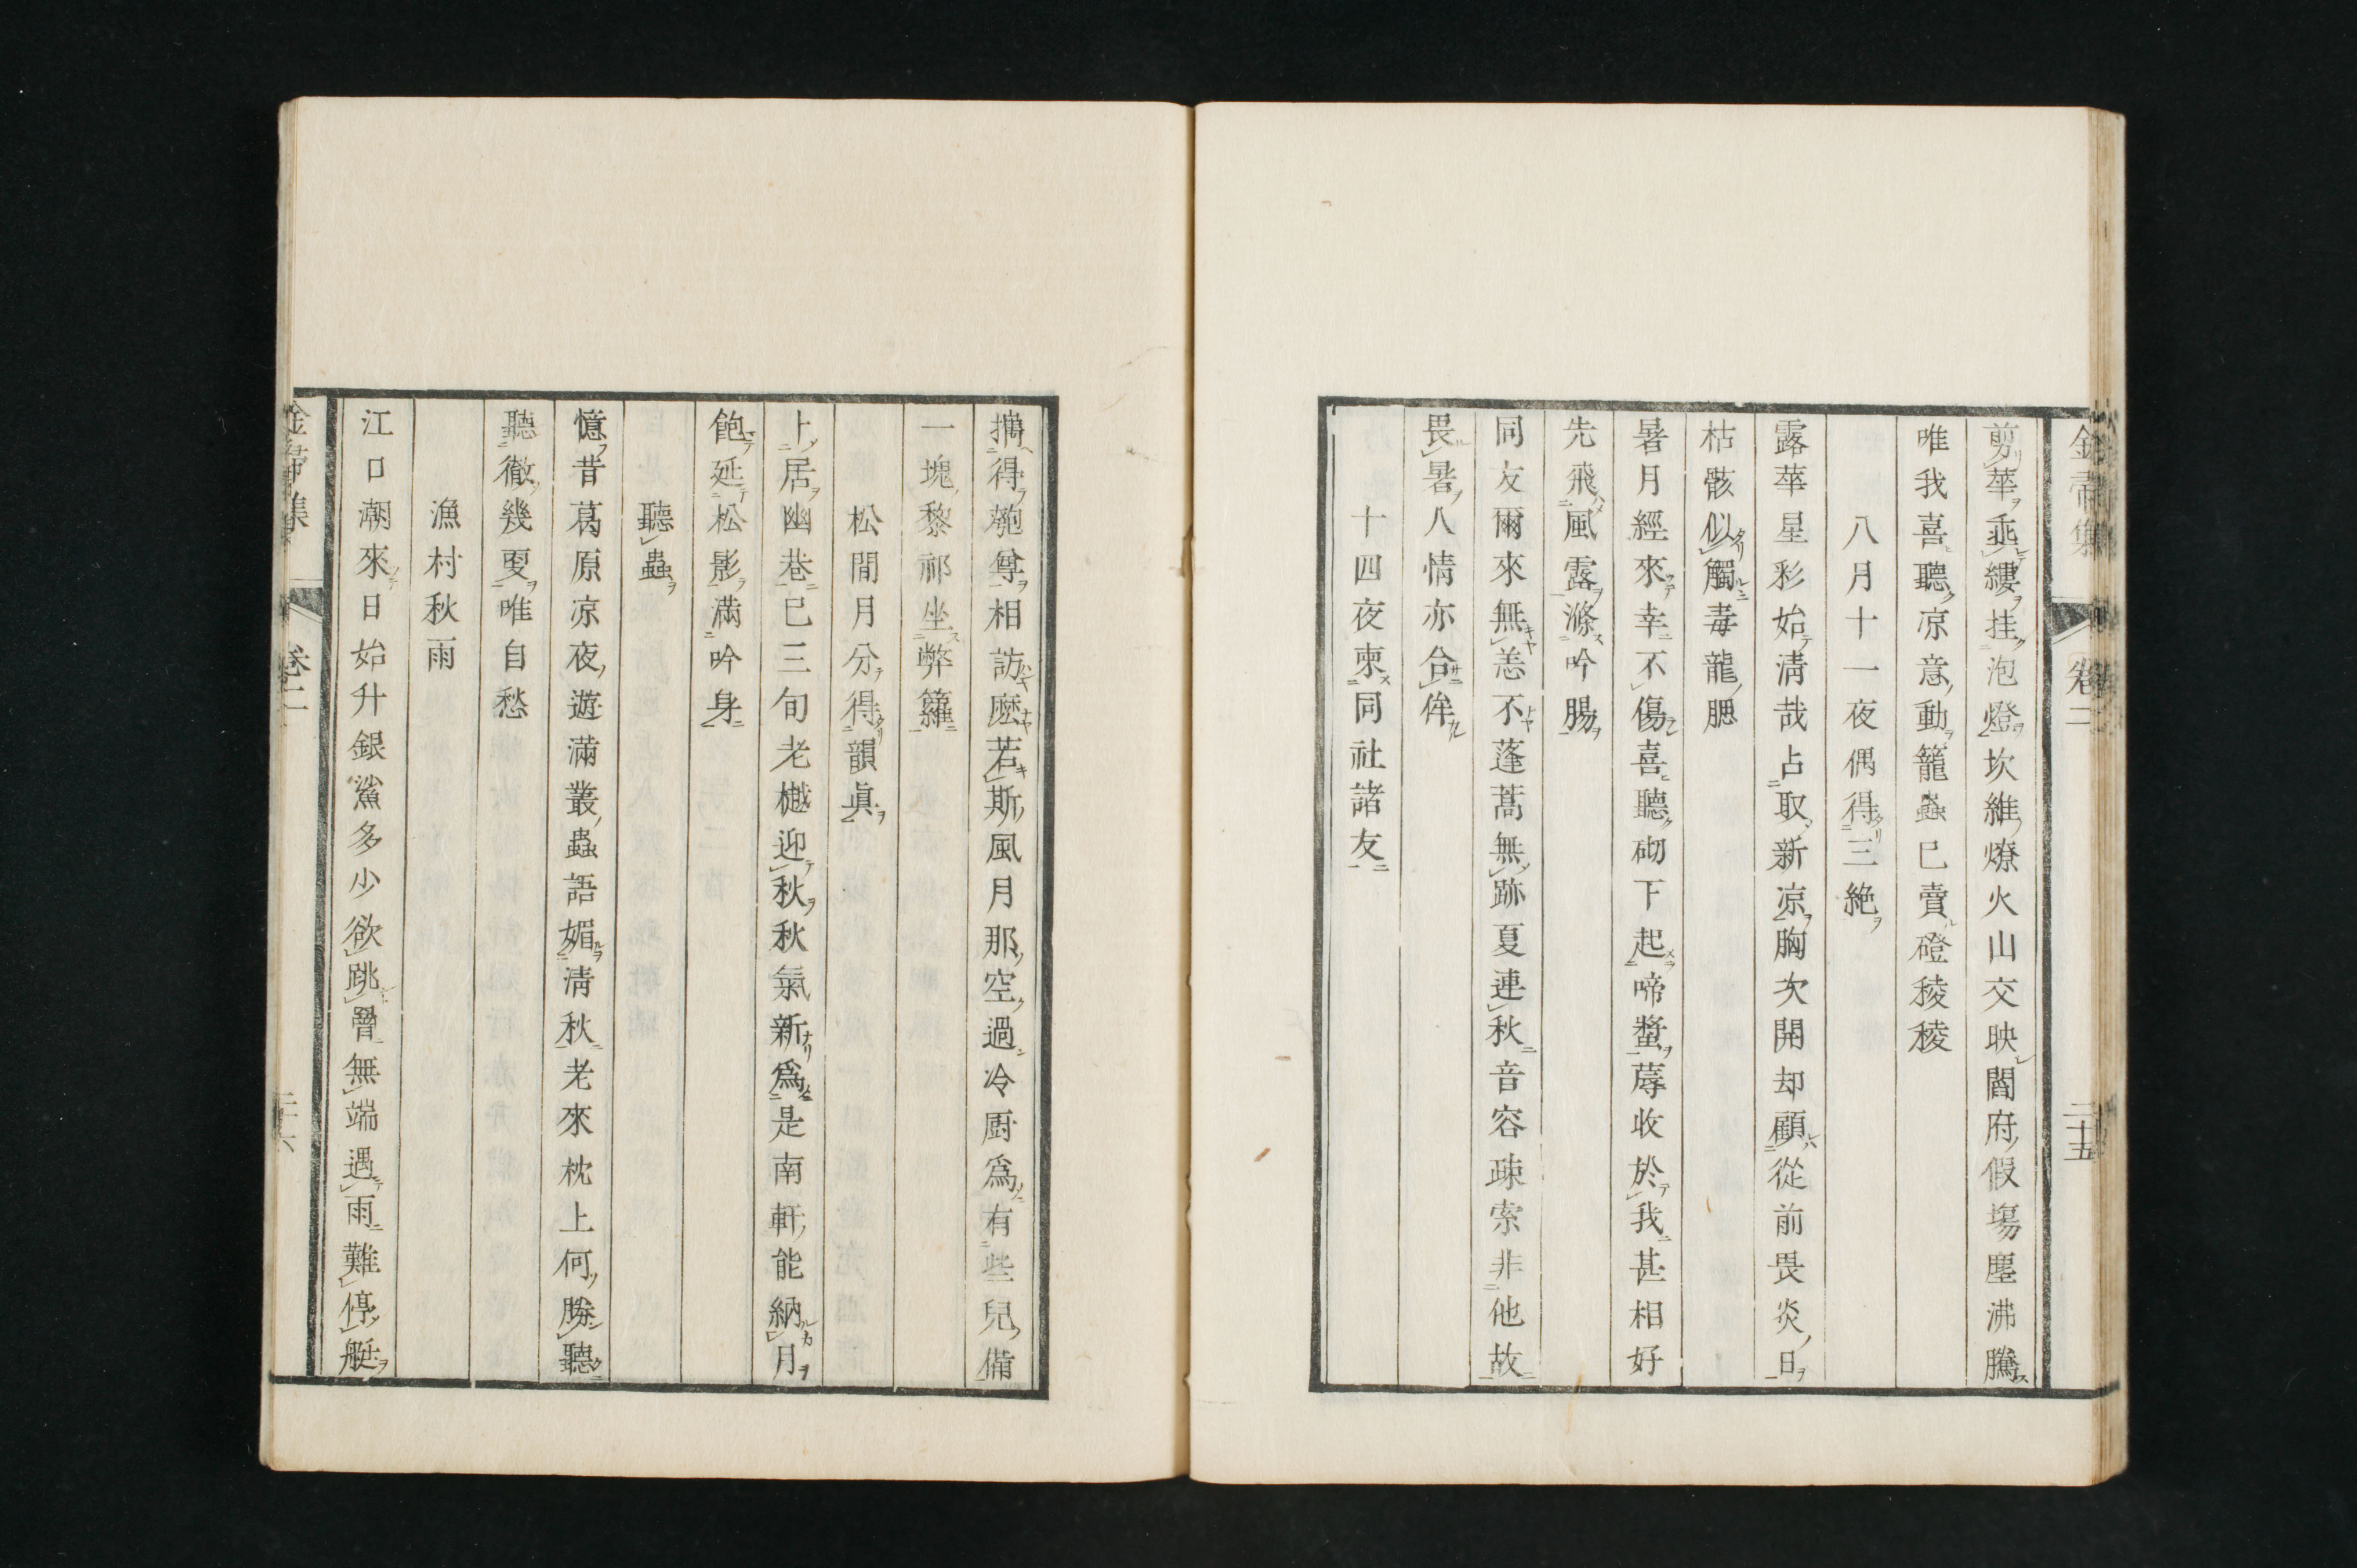 金帚集 卷二 二十五
剪華乖縷挂泡燈坎維燎火山交映閻府假塲塵沸騰
唯我喜聽凉意動籠蟲已賣磴稜稜
八月十一夜偶得三絶
露華星彩始淸哉占取新凉胸次開却顧從前畏炎日
枯骸似觸毒龍腮
暑月經來幸不傷喜聽砌下起啼螿蓐收於我甚相好
先飛風露滌吟腸
同友爾來無恙不蓬蒿無跡夏連秋音容疎索非他故
畏暑人情亦合侔
十四夜柬同社諸友
携得匏尊相訪麽若斯風月那空過冷厨爲有些兒備
一塊黎祁坐弊籮
松間月分得韻眞
卜居幽巷已三旬老樾迎秋秋氣新爲是南軒能納月
飽延松影滿吟身
聽蟲
憶昔葛原凉夜遊滿叢蟲語媚淸秋老來枕上何勝聽
聽徹幾更唯自愁
漁村秋雨
江口潮來日始升銀鯊多少欲跳罾無端遇雨難停艇
金帚集 卷二 二十六